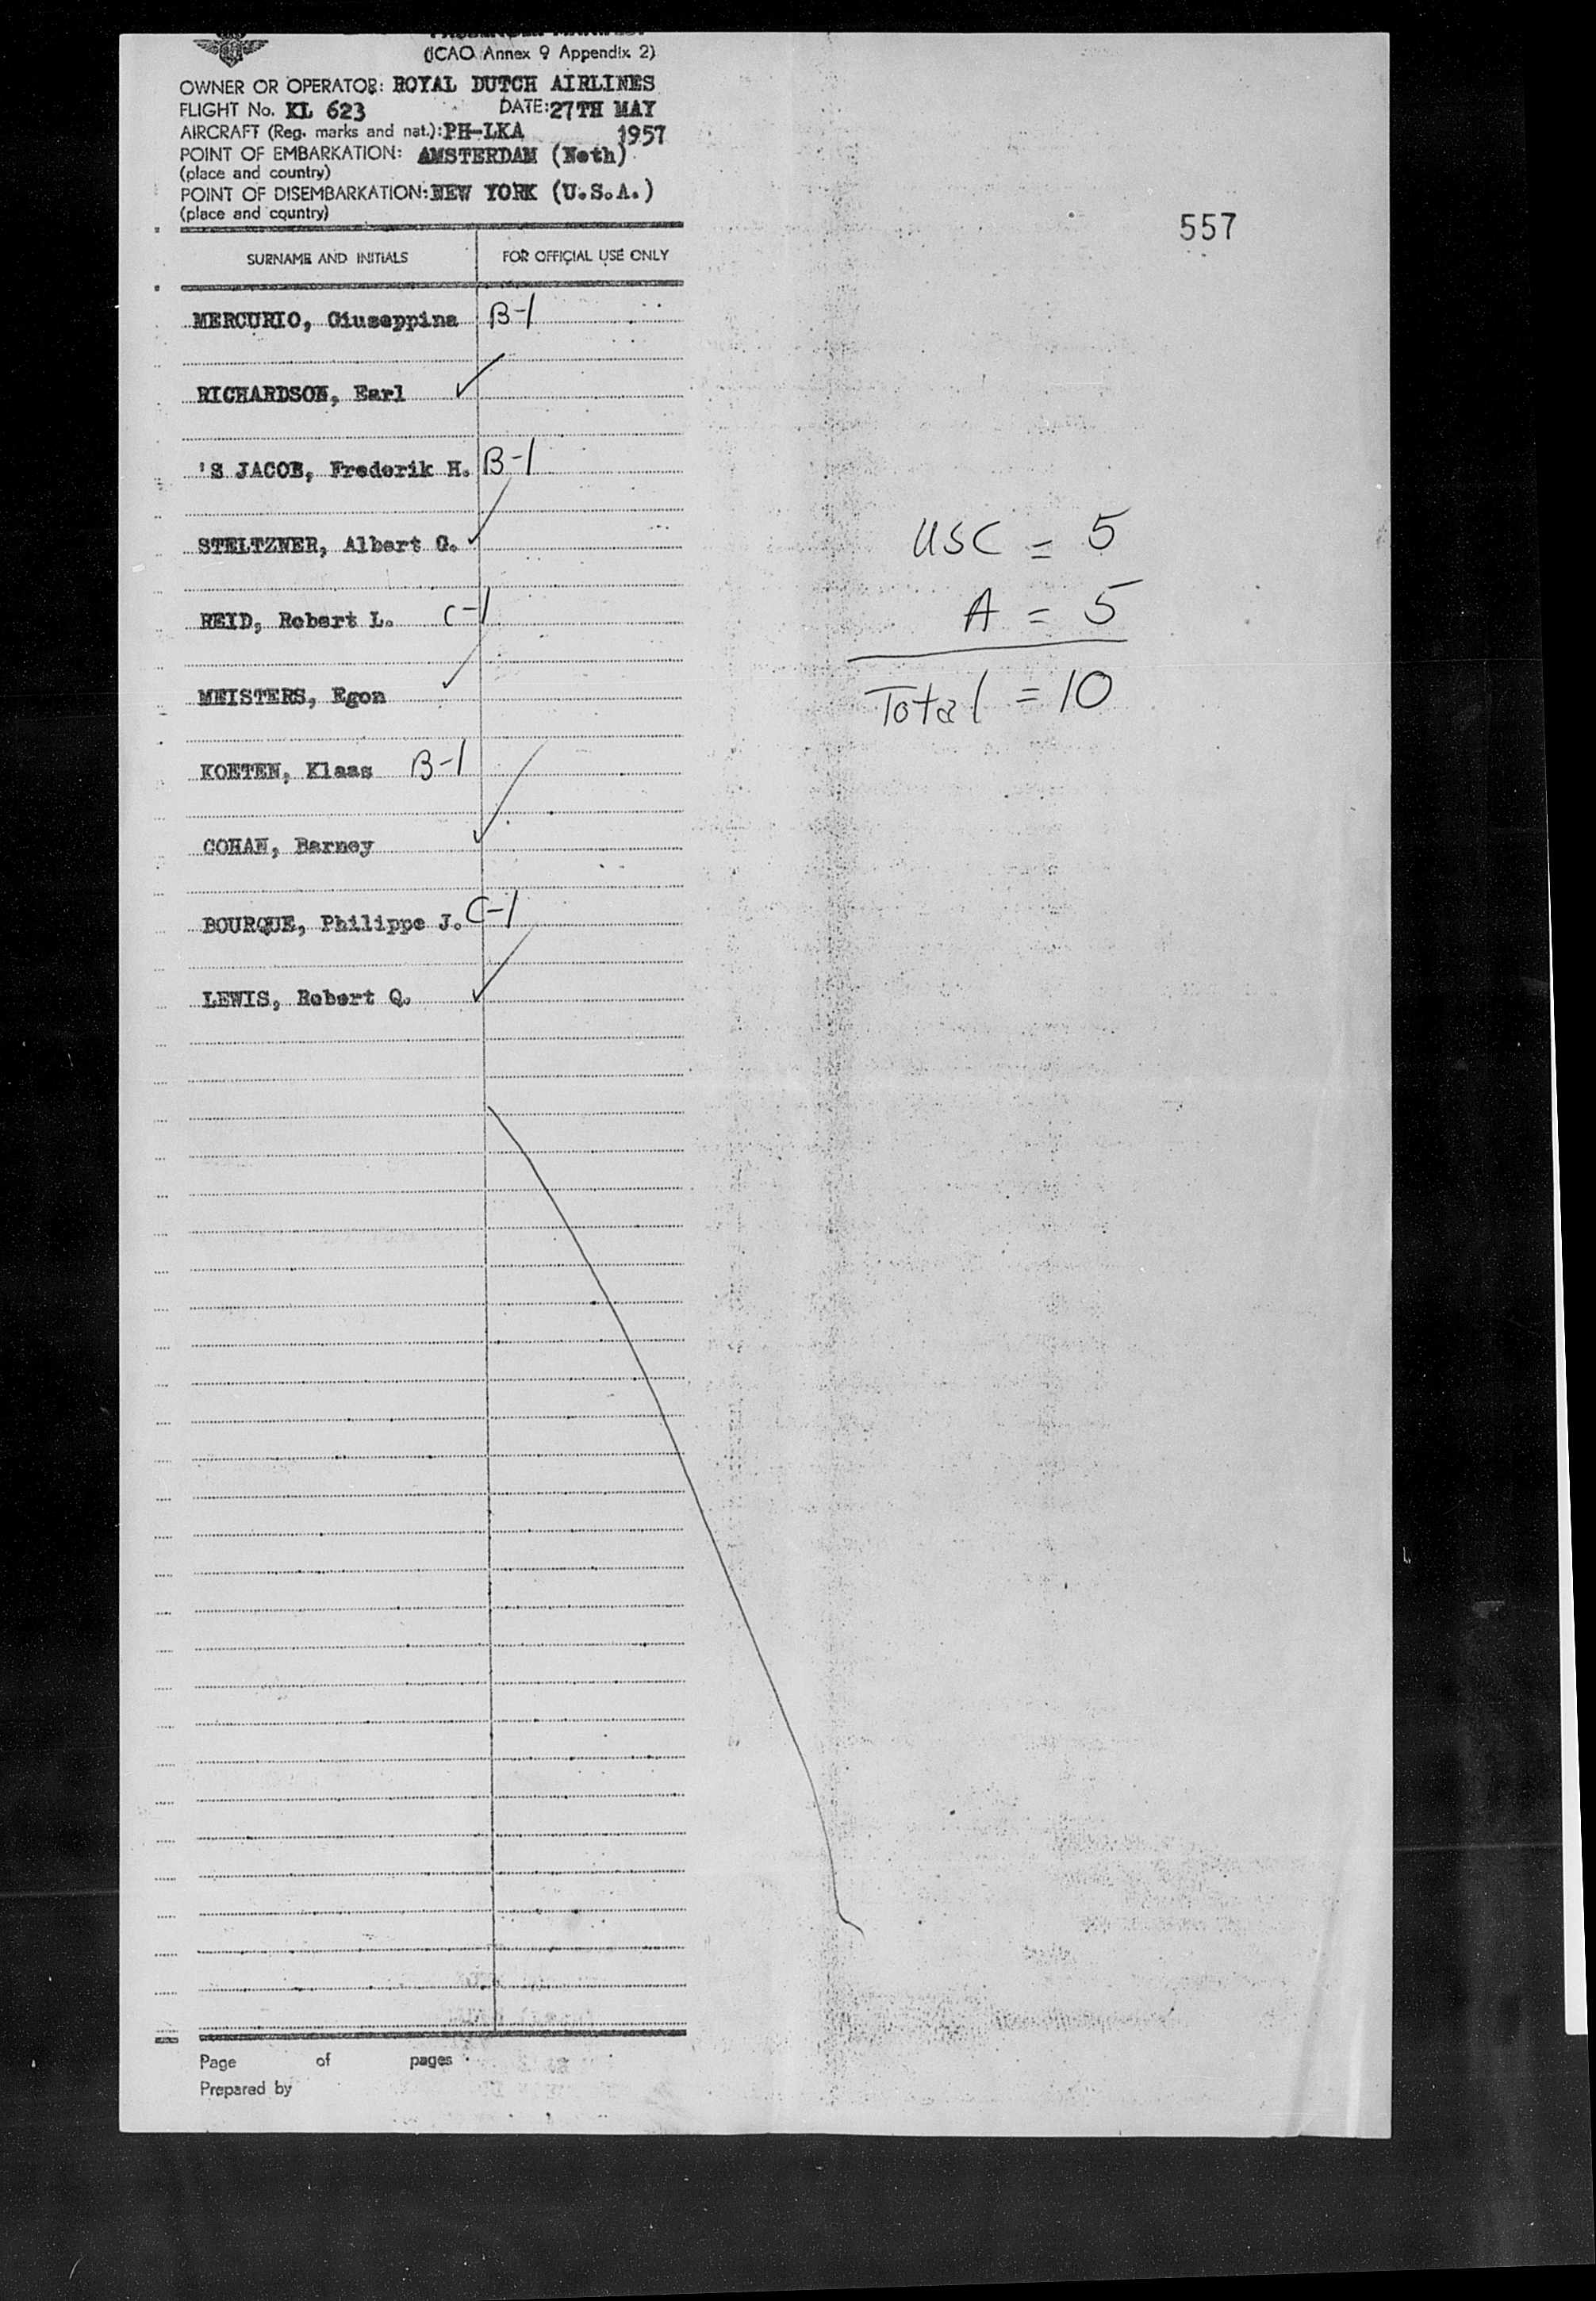 PASSENGER MANIFEST
(ICAO Annex 9 Appendix 2)
OWNER OR OPERATOR: ROYAL DUTCH AIRLINES
FLIGHT No. KL 623 DATE: 27TH MAY
AIRCRAFT (Reg. marks and nat.): PH-LKA 1957
POINT OF EMBARKATION: AMSTERDAM (Neth)
(place and country)
POINT OF DISEMBARKATION: NEW YORK (U.S.A.)
(place and country)
557
SURNAME AND INITIALS FOR OFFICIAL USE ONLY
MERCURIO, Giuseppina B-1
RICHARDSON, Earl ✓
'S JACOB, Frederik H. B-1
STELTZNER, Albert G. ✓
REID, Robert L. C-1
MEISTERS, Egon ✓
KOETEN, Klaas B-1
COHAN, Barney ✓
BOURQUE, Philippe J. C-1
LEWIS, Robert Q. ✓
USC = 5
A = 5
Total = 10
Page of pages
Prepared by